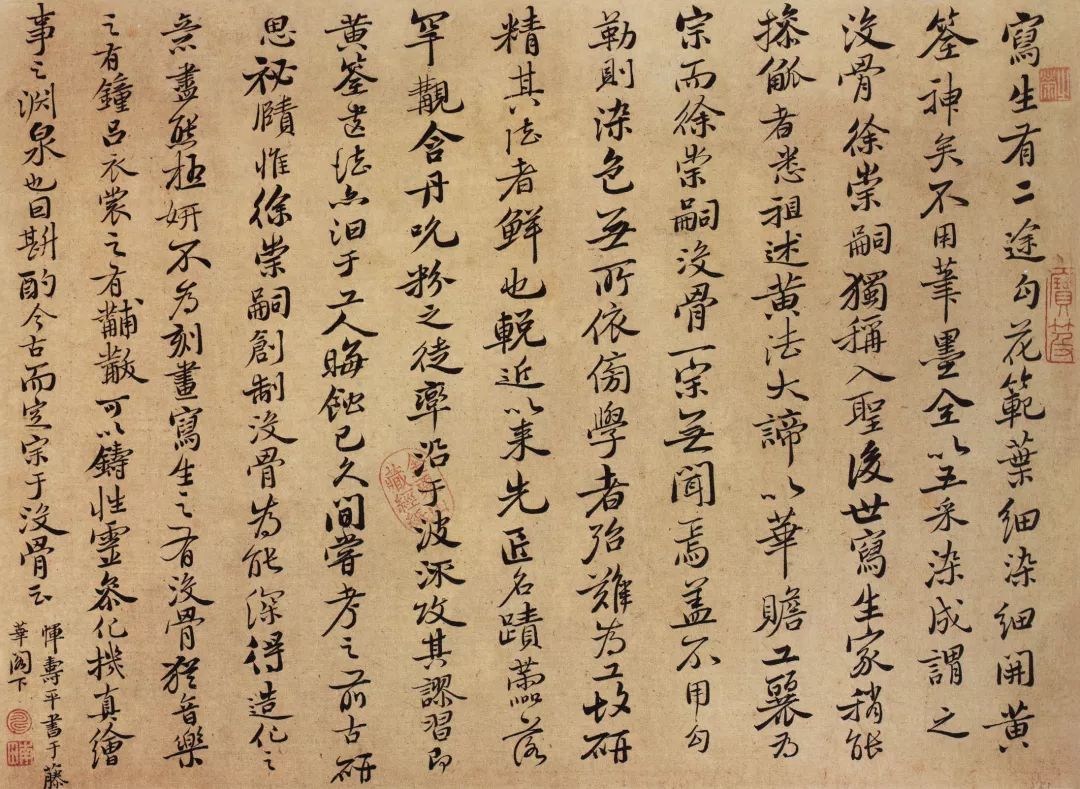 寫生有二途勾花範葉細染細開黃
筌神矣不用筆墨全以五采染成謂之
沒骨徐崇嗣獨稱入聖後世寫生家稍能
操觚者悉祖述黃法大諦以華贍工麗為
宗而徐崇嗣沒骨一宗無聞焉蓋不用勾
勒則染色無所依傍學者殆難為工故研
精其法者鮮也輓近以來先匠名蹟蕩落
罕覯含丹吮粉之徒率沿于波流改其謬習即
黃筌遺法亦汩于工人晦蝕已久間嘗考之前古研
思祕賾惟徐崇嗣創制沒骨為能深得造化之
意盡態極妍不為刻畫寫生之有沒骨猶音樂
之有鐘呂衣裳之有黼黻可以鑄性靈參化機真繪
事之淵泉也因斟酌今古而定宗于沒骨云
惲壽平書于藤
華閣下